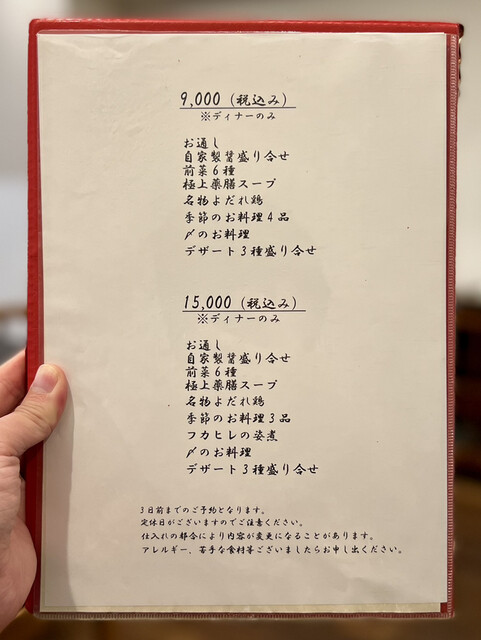 9,000（税込み）
※ディナーのみ
お通し
自家製醤盛り合せ
前菜6種
極上薬膳スープ
名物よだれ鶏
季節のお料理4品
〆のお料理
デザート3種盛り合せ
15,000（税込み）
※ディナーのみ
お通し
自家製醤盛り合せ
前菜6種
極上薬膳スープ
名物よだれ鶏
季節のお料理3品
フカヒレの姿煮
〆のお料理
デザート3種盛り合せ
3日前までのご予約となります。
定休日がございますのでご注意ください。
仕入れの都合により内容が変更になることがあります。
アレルギー、苦手な食材等ございましたらお申し出ください。